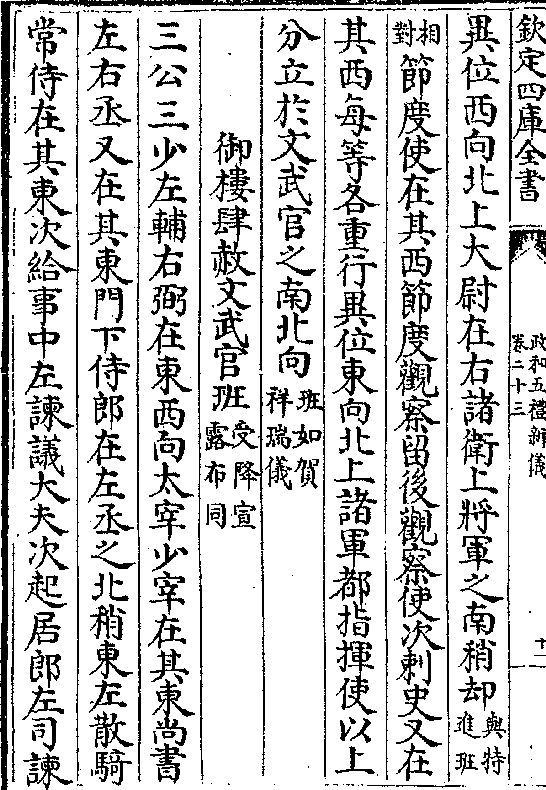 欽定四庫全書
政和五禮新儀
卷二十三
十一
異位西向北上大尉在右諸衛上將軍之南稍却與特進班
相對節度使在其西節度觀察留後觀察使次刺史又在
其西每等各重行異位東向北上諸軍都指揮使以上
分立於文武官之南北向班如賀祥瑞儀
御樓肆赦文武官班受降宣露布同
三公三少左輔右弼在東西向太宰少宰在其東尚書
左右丞又在其東門下侍郎在左丞之北稍東左散騎
常侍在其東次給事中左諫議大夫次起居郎左司諫